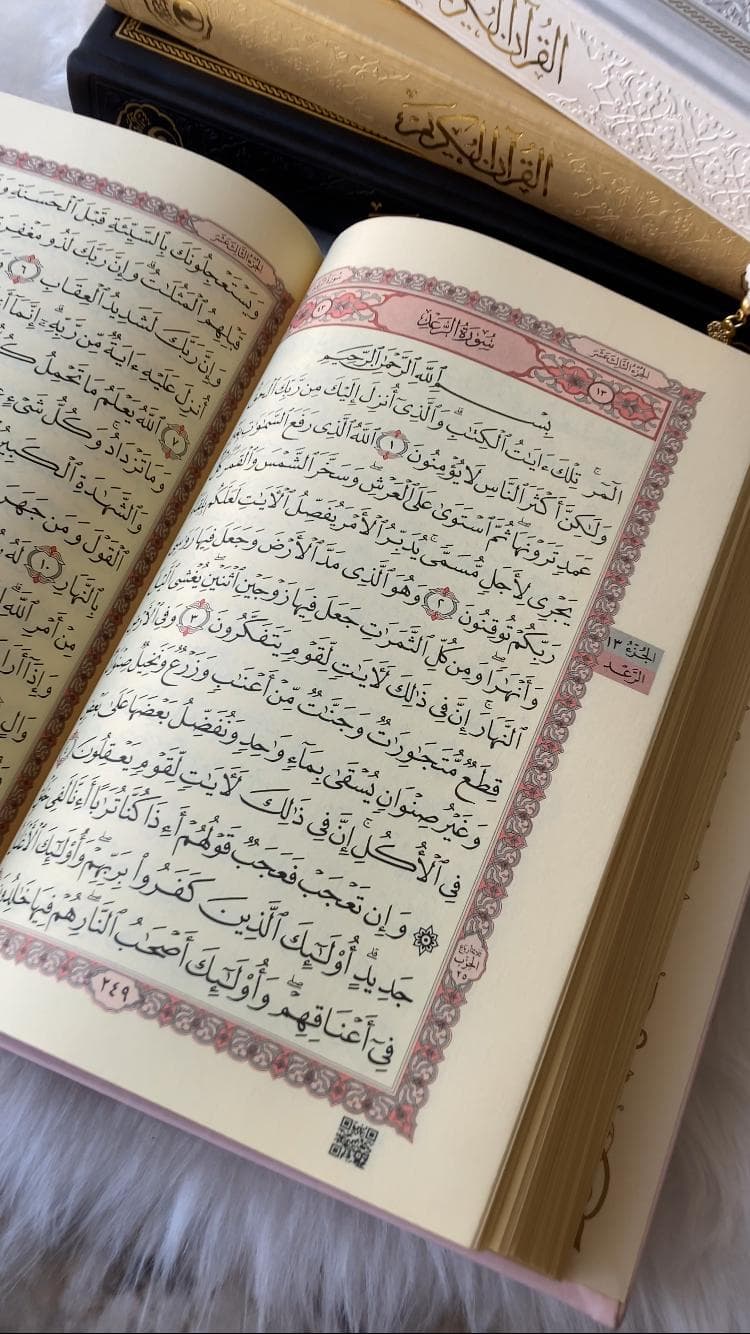 القرآن الكريم
القرآن الكريم
الجزء الثالث عشر
سُورَةُ الرَّعْدِ
١٣
١٣
بِسْمِ ٱللَّهِ ٱلرَّحْمَٰنِ ٱلرَّحِيمِ
الٓمٓرۚ تِلْكَ ءَايَٰتُ ٱلْكِتَٰبِۗ وَٱلَّذِىٓ أُنزِلَ إِلَيْكَ مِن رَّبِّكَ
وَلَٰكِنَّ أَكْثَرَ ٱلنَّاسِ لَا يُؤْمِنُونَ ١ ٱللَّهُ ٱلَّذِى رَفَعَ ٱلسَّمَٰوَٰتِ
عَمَدٍ تَرَوْنَهَاۖ ثُمَّ ٱسْتَوَىٰ عَلَى ٱلْعَرْشِۖ وَسَخَّرَ ٱلشَّمْسَ وَٱلْقَمَرَۖ
يَجْرِى لِأَجَلٍ مُّسَمًّىۚ يُدَبِّرُ ٱلْأَمْرَ يُفَصِّلُ ٱلْءَايَٰتِ لَعَلَّكُم
رَبِّكُمْ تُوقِنُونَ ٢ وَهُوَ ٱلَّذِى مَدَّ ٱلْأَرْضَ وَجَعَلَ فِيهَا
وَأَنْهَٰرًاۖ وَمِن كُلِّ ٱلثَّمَرَٰتِ جَعَلَ فِيهَا زَوْجَيْنِ ٱثْنَيْنِۖ يُغْشِى
ٱلنَّهَارَۚ إِنَّ فِى ذَٰلِكَ لَءَايَٰتٍ لِّقَوْمٍ يَتَفَكَّرُونَ ٣ وَفِى
قِطَعٌ مُّتَجَٰوِرَٰتٌ وَجَنَّٰتٌ مِّنْ أَعْنَٰبٍ وَزَرْعٌ وَنَخِيلٌ
وَغَيْرُ صِنْوَانٍ يُسْقَىٰ بِمَآءٍ وَٰحِدٍ وَنُفَضِّلُ بَعْضَهَا عَلَىٰ
فِى ٱلْأُكُلِۚ إِنَّ فِى ذَٰلِكَ لَءَايَٰتٍ لِّقَوْمٍ يَعْقِلُونَ
۞ وَإِن تَعْجَبْ فَعَجَبٌ قَوْلُهُمْ أَءِذَا كُنَّا تُرَٰبًا أَءِنَّا لَفِى
جَدِيدٍۗ أُو۟لَٰٓئِكَ ٱلَّذِينَ كَفَرُوا۟ بِرَبِّهِمْۖ وَأُو۟لَٰٓئِكَ
فِىٓ أَعْنَاقِهِمْۖ وَأُو۟لَٰٓئِكَ أَصْحَٰبُ ٱلنَّارِۖ هُمْ فِيهَا
٢٤٩
الجزء ١٣
الرعد
الحزب
٢٥
الجزء الثالث عشر
وَيَسْتَعْجِلُونَكَ بِٱلسَّيِّئَةِ قَبْلَ ٱلْحَسَنَةِ
قَبْلِهِمُ ٱلْمَثُلَٰتُۗ وَإِنَّ رَبَّكَ لَذُو مَغْفِرَةٍ
وَإِنَّ رَبَّكَ لَشَدِيدُ ٱلْعِقَابِ ٦
أُنزِلَ عَلَيْهِ ءَايَةٌ مِّن رَّبِّهِۦٓۗ إِنَّمَآ
٧ ٱللَّهُ يَعْلَمُ مَا تَحْمِلُ
وَمَا تَزْدَادُۖ وَكُلُّ شَىْءٍ
وَٱلشَّهَٰدَةِ ٱلْكَبِيرُ
ٱلْقَوْلَ وَمَن جَهَرَ
بِٱلنَّهَارِ ١٠ لَهُۥ
مِنْ أَمْرِ ٱللَّهِ
وَإِذَآ أَرَادَ
وَالٍ